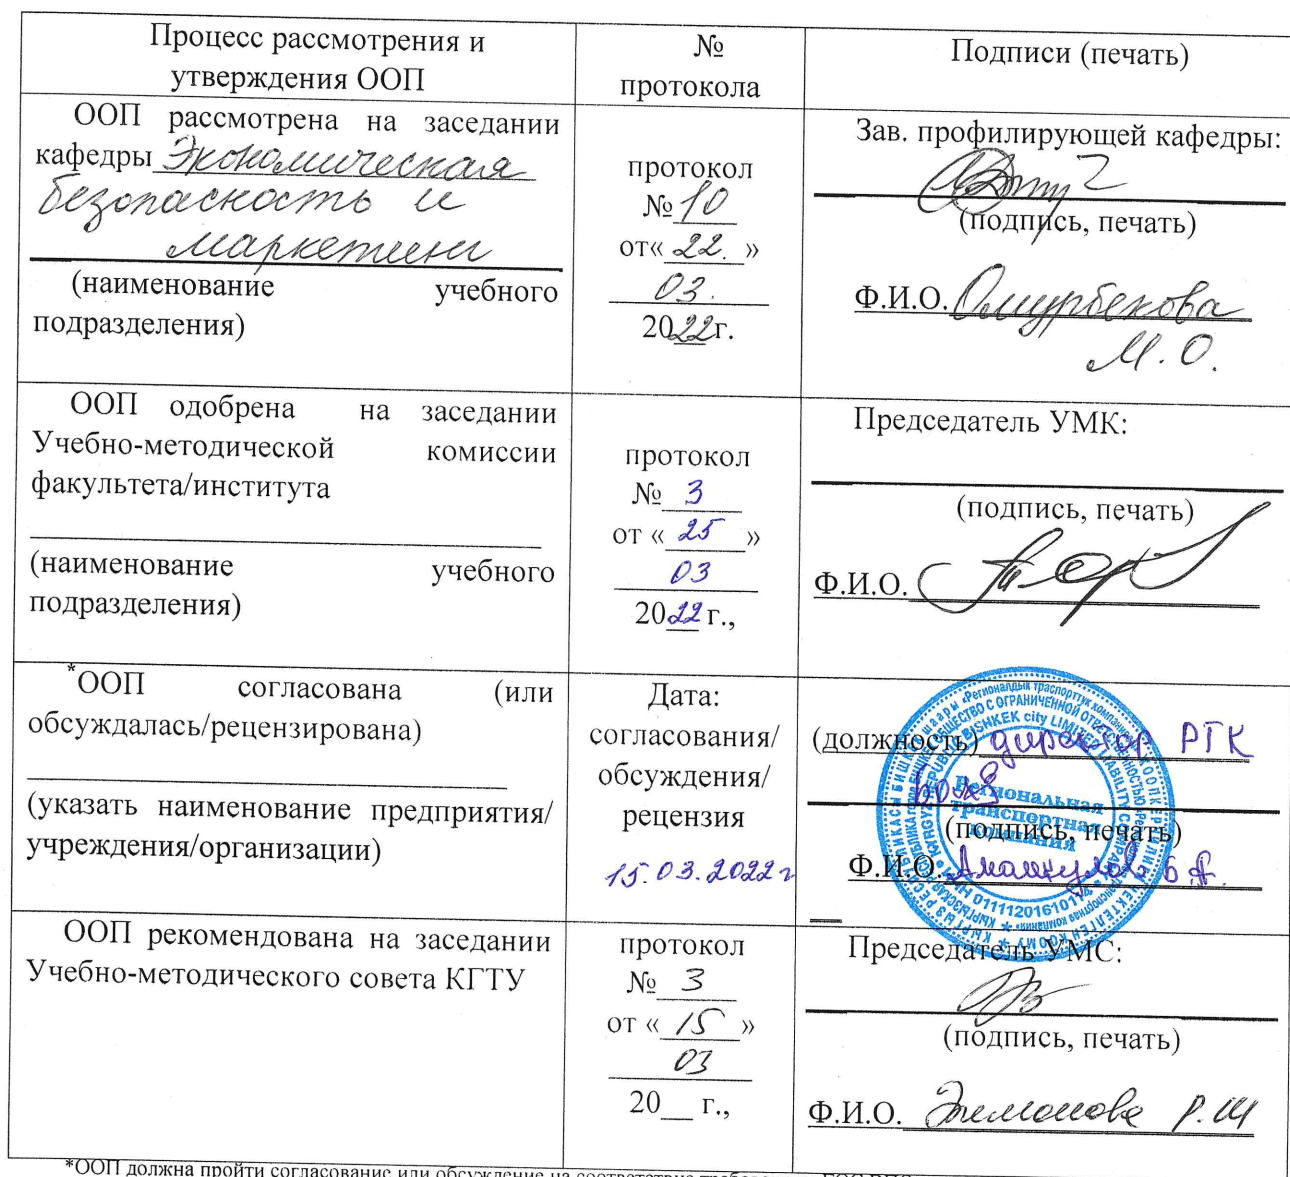 Процесс рассмотрения и
утверждения ООП
№
протокола
Подписи (печать)
ООП рассмотрена на заседании
кафедры Экономическая
безопасность и
маркетинг
(наименование учебного
подразделения)
протокол
№ 10
от« 22. »
03.
2022г.
Зав. профилирующей кафедры:
(подпись, печать)
Ф.И.О. Омурбекова
М.О.
ООП одобрена на заседании
Учебно-методической комиссии
факультета/института
(наименование учебного
подразделения)
протокол
№ 3
от « 25 »
03
2022 г.,
Председатель УМК:
(подпись, печать)
Ф.И.О.
*ООП согласована (или
обсуждалась/рецензирована)
(указать наименование предприятия/
учреждения/организации)
Дата:
согласования/
обсуждения/
рецензия
15.03.2022г
(должность) директор РТК
Региональная
транспортная
компания
(подпись, печать)
Ф.И.О.
ООП рекомендована на заседании
Учебно-методического совета КГТУ
протокол
№ 3
от « 15 »
03
20__ г.,
Председатель УМС:
(подпись, печать)
Ф.И.О. Р.Ш
*ООП должна пройти согласование или обсуждение на соответствие